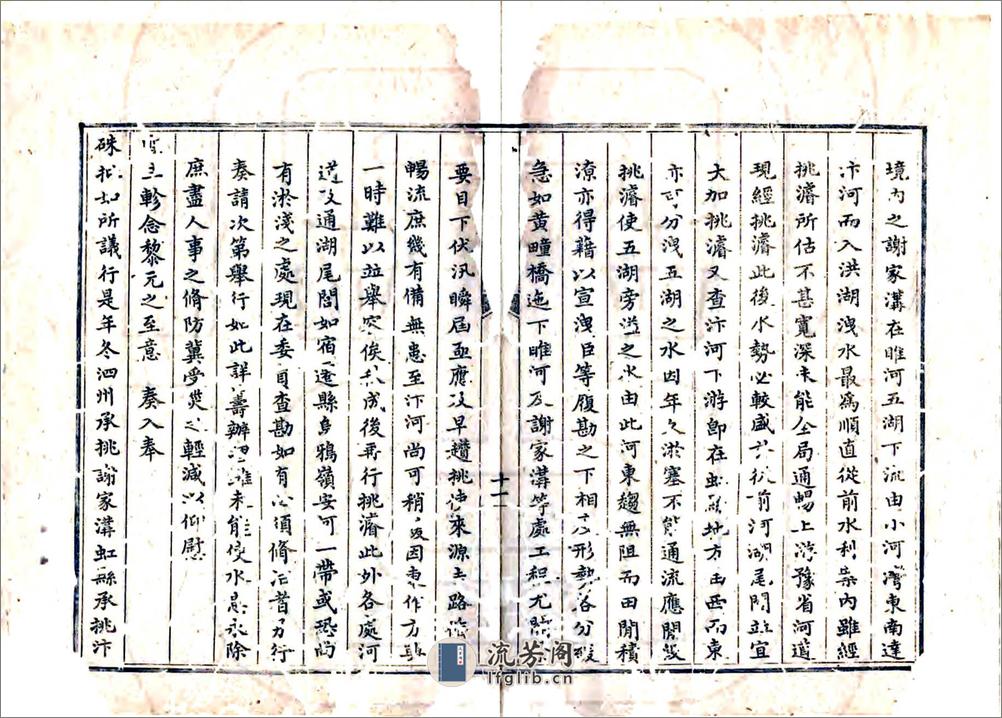 境內之謝家溝在睢河五湖下流由小河灣東南達
汴河而入洪湖洩水最爲順直從前水利案內雖經
挑濬所估不甚寬深未能全局通暢上游豫省河道
現經挑濬此後水勢必較盛於從前河湖尾閭並宜
大加挑濬又查汴河下游即在虹縣地方由西而東
亦可分洩五湖之水因年久淤塞不能通流應開
挑濬使五湖旁溢之水由此河東趨無阻而田閒積
潦亦得藉以宣洩臣等履勘之下相度形勢分
急如黃疃橋迤下睢河及謝家溝等處工程尤關
十一
要目下伏汛瞬屆亟應及早趲挑使來源去路
暢流庶幾有備無患至汴河尚可稍緩因東作方興
一時難以並舉容俟秋成後再行挑濬此外各處河
道及通湖尾閭如宿遷縣烏鴉嶺安可一帶或恐尚
有淤淺之處現在委員查勘如有必須修治者另行
奏請次第舉行如此詳籌辦理雖未能使水患永除
庶盡人事之脩防冀受災之輕減以仰慰
聖主軫念黎元之至意 奏入奉
硃批如所議行是年冬泗州承挑謝家溝虹縣承挑汴
流芳阁
lfglib.cn